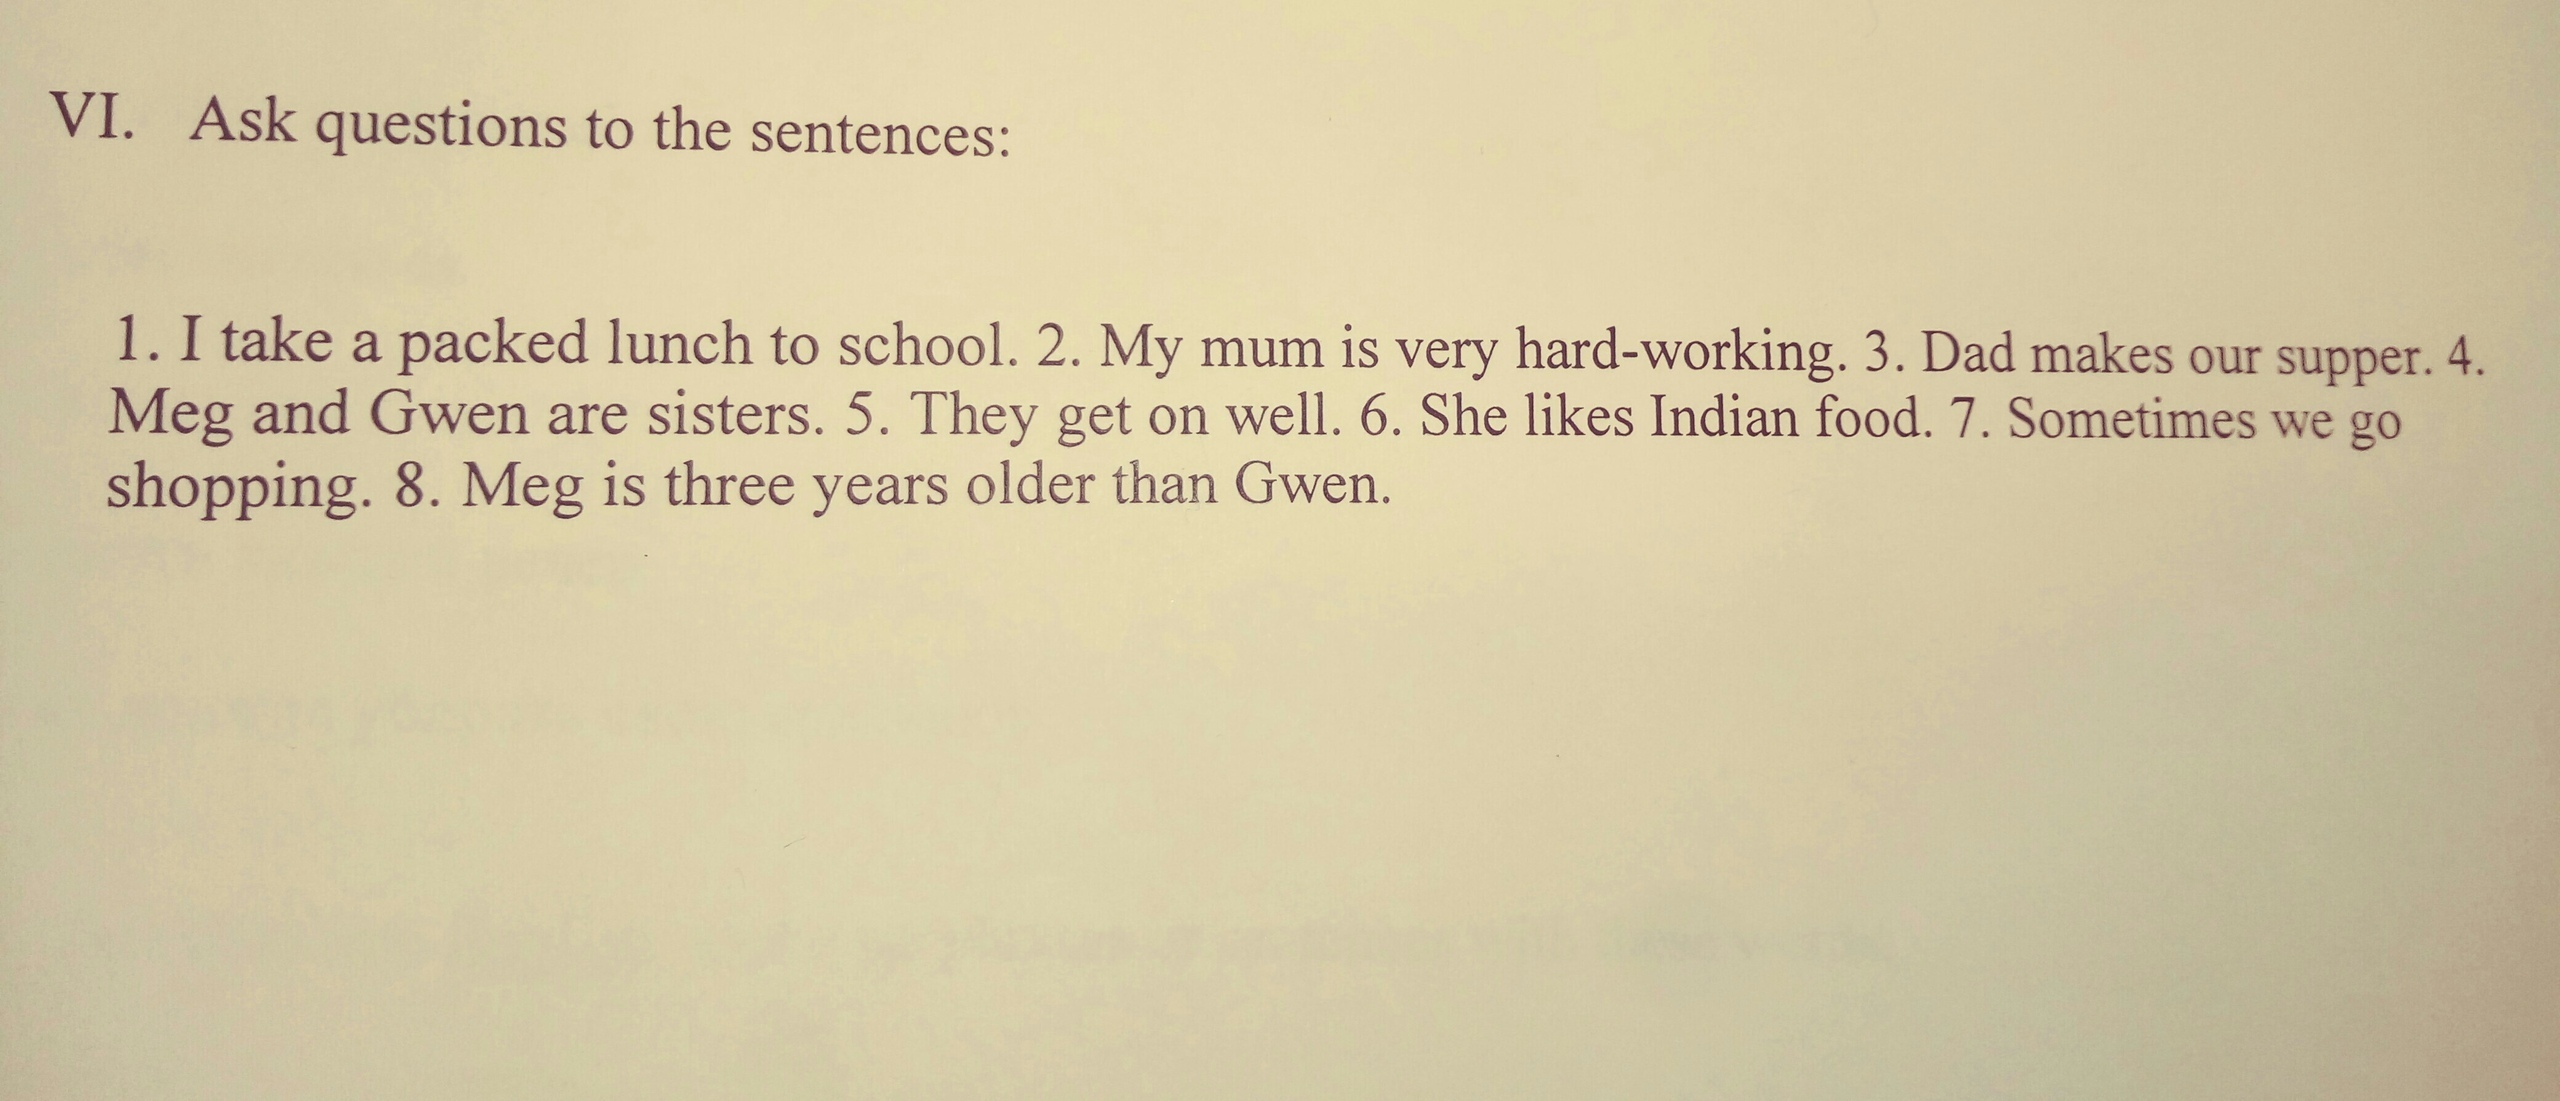 VI. Ask questions to the sentences:
1. I take a packed lunch to school. 2. My mum is very hard-working. 3. Dad makes our supper. 4.
Meg and Gwen are sisters. 5. They get on well. 6. She likes Indian food. 7. Sometimes we go
shopping. 8. Meg is three years older than Gwen.